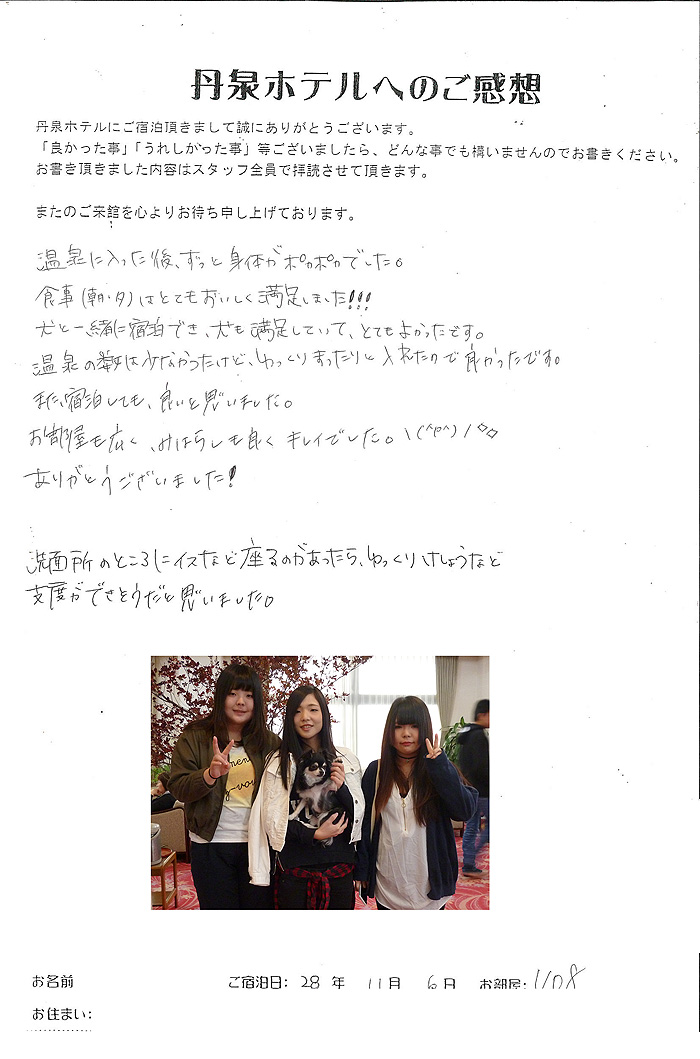 丹泉ホテルへのご感想
丹泉ホテルにご宿泊頂きまして誠にありがとうございます。
「良かった事」「うれしかった事」等ございましたら、どんな事でも構いませんのでお書きください。
お書き頂きました内容はスタッフ全員で拝読させて頂きます。
またのご来館を心よりお待ち申し上げております。
温泉に入った後、ずっと身体がポカポカでした。
食事(朝・夕)はとてもおいしく満足しました!!!
犬と一緒に宿泊でき、犬も満足していて、とてもよかったです。
温泉の数は少なかったけど、ゆっくりまったりと入れたので良かったです。
また、宿泊しても、良いと思いました。
お部屋も広く、みはらしも良くキレイでした。\(^o^)/◇◇
ありがとうございました!
洗面所のところにイスなど座るのがあったら、ゆっくりけしょうなど
支度ができそうだと思いました。
men
y-vou
お名前 ご宿泊日: 28 年 11 月 6 日 お部屋: 1108
お住まい: